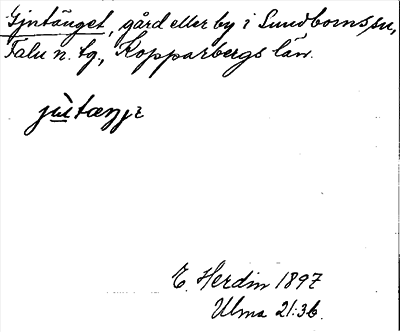 Gjntänget, gård eller by i Sundborns sn,
Falu n. tg., Kopparbergs län.
E. Herdin 1897
Ulma 21:36.